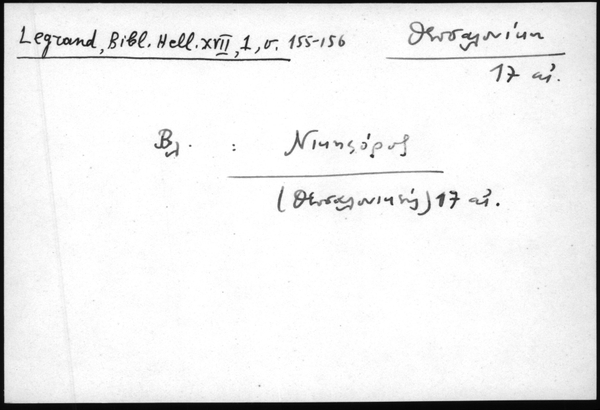 Legrand, Bibl. Hell. XVII, 1, σ. 155-156
Θεσσαλονίκη
17 αἰ.
Βλ. :
(Θεσσαλονικεύς) 17 αἰ.